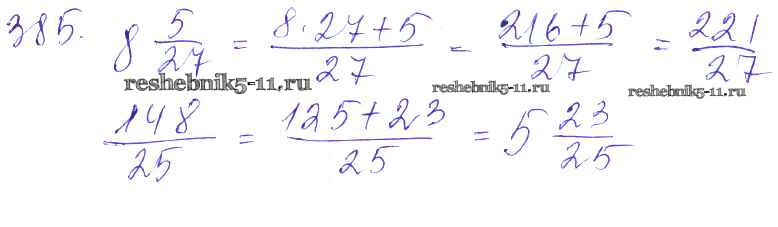 385. 8 5/27 = (8·27+5)/27 = (216+5)/27 = 221/27
reshebnik5-11.ru reshebnik5-11.ru reshebnik5-11.ru
148/25 = (125+23)/25 = 5 23/25